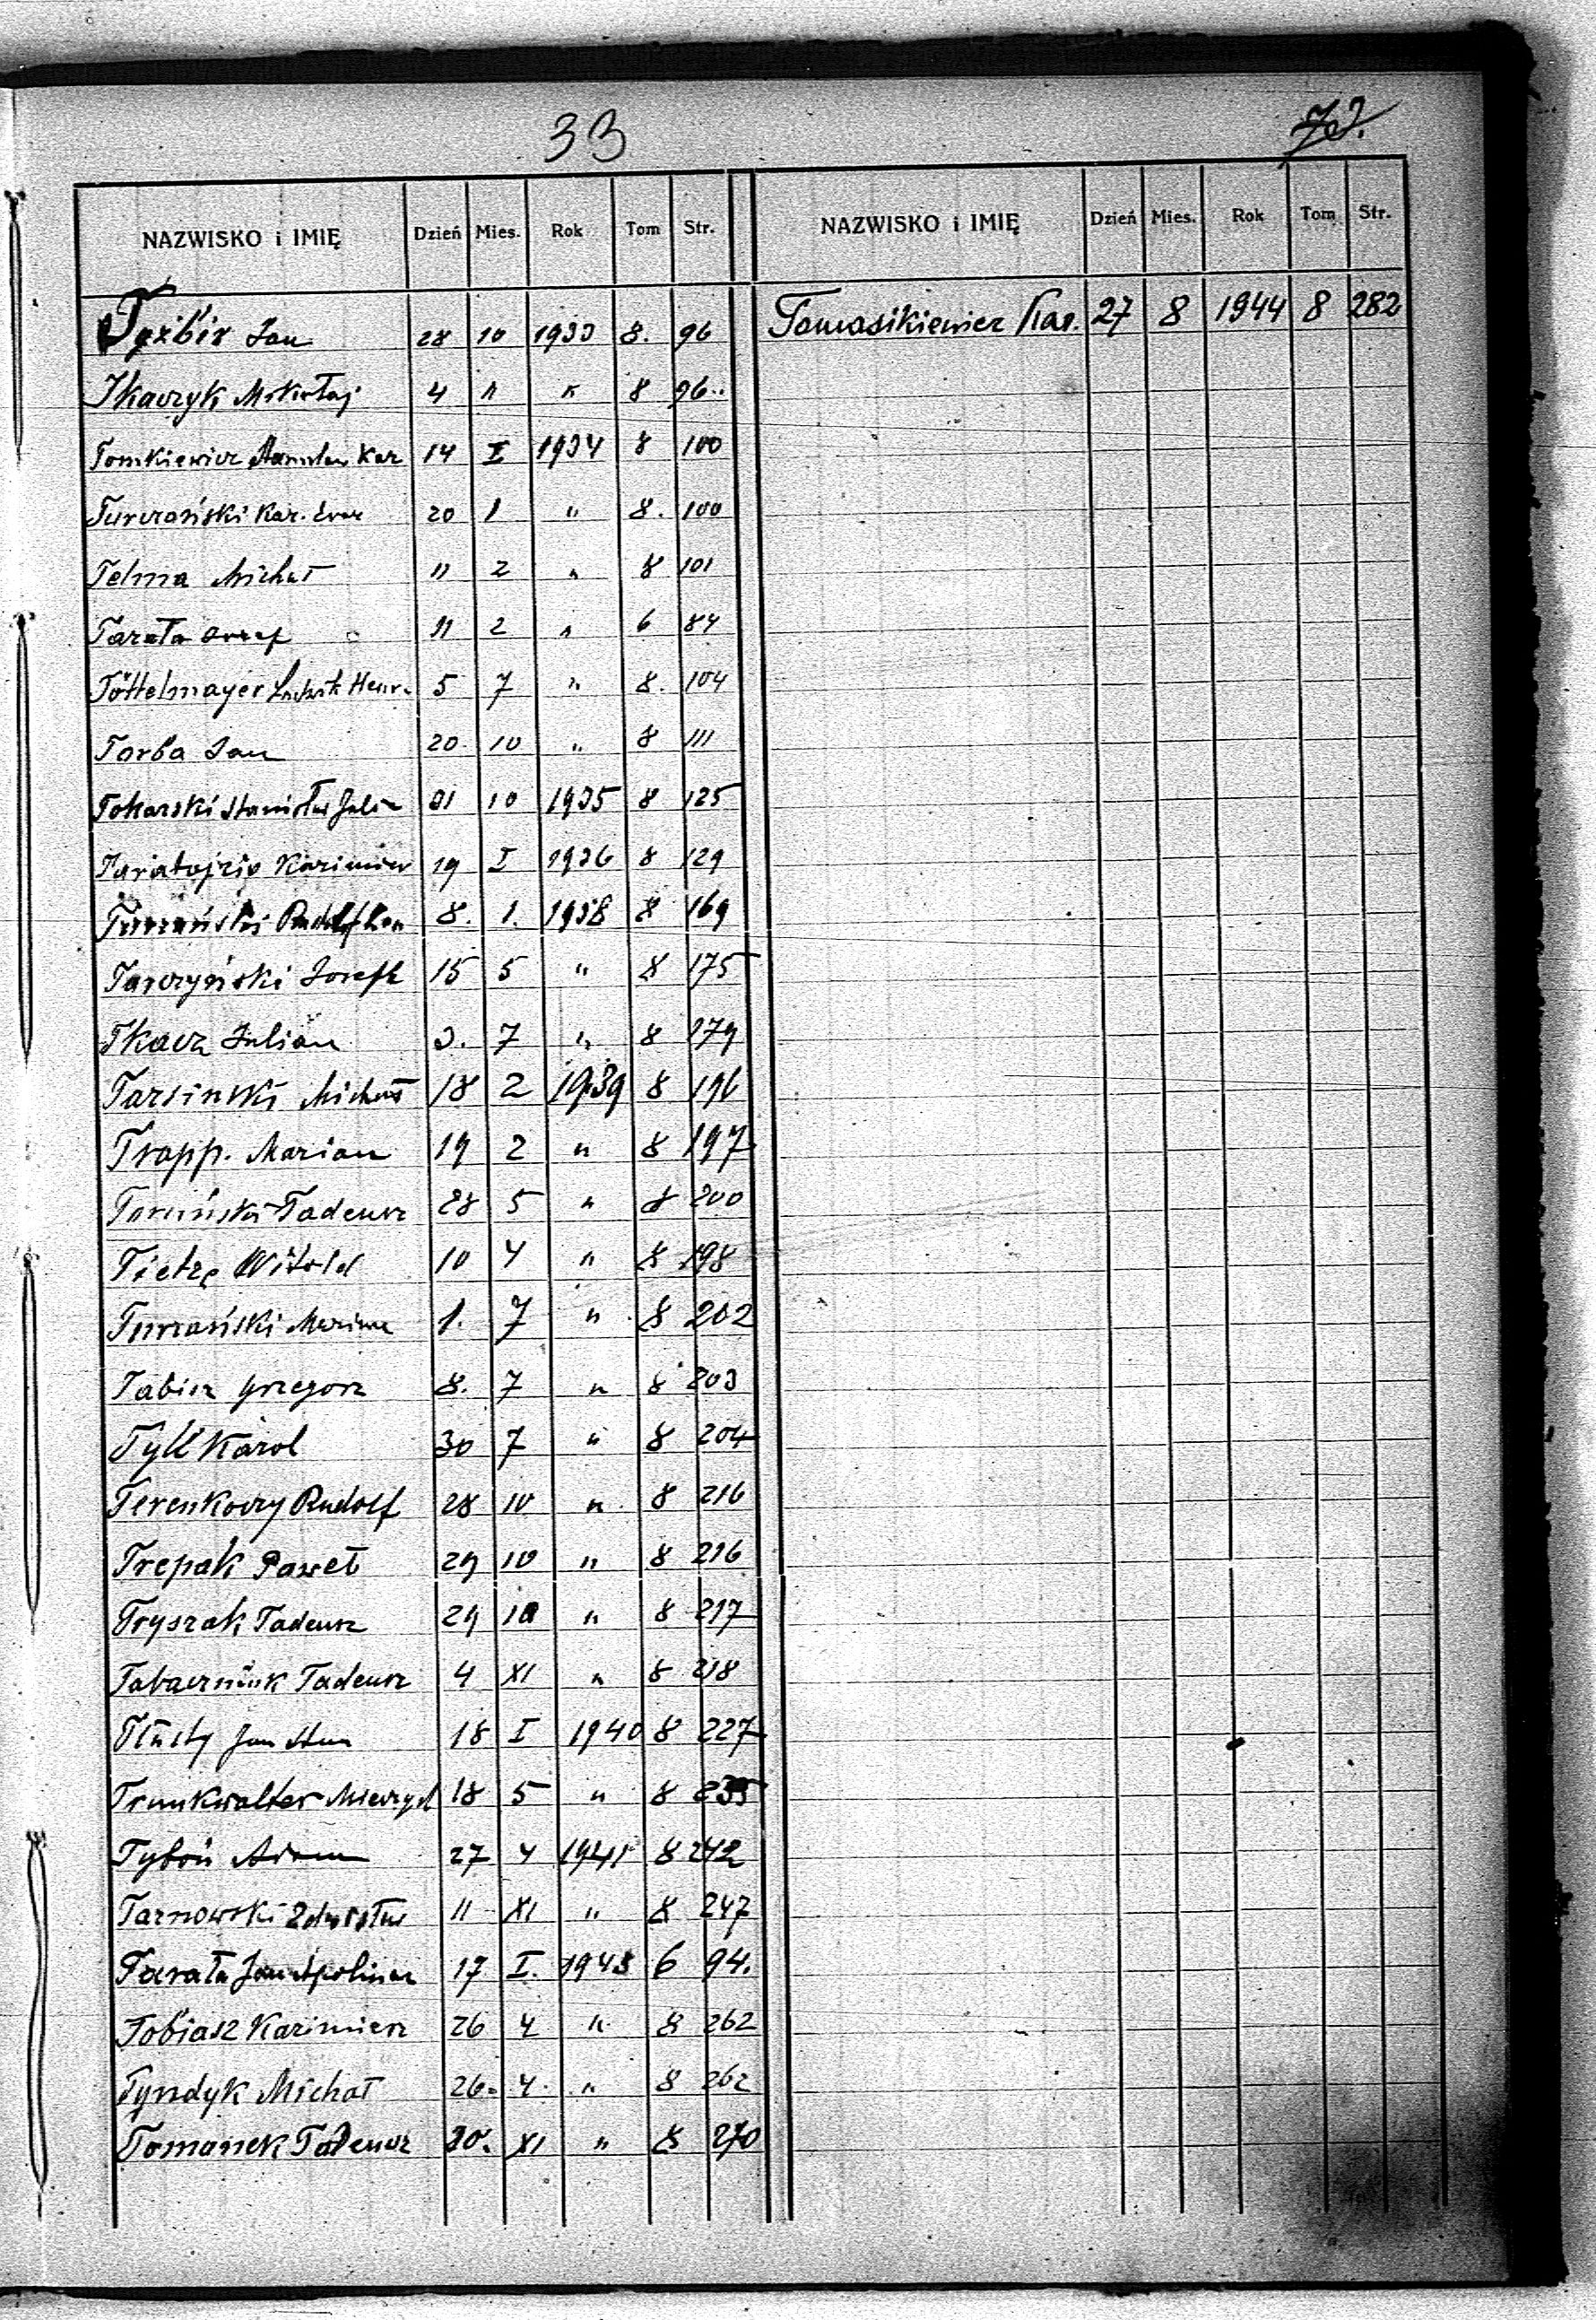 33
NAZWISKO i IMIĘ Dzień Mies. Rok Tom Str. NAZWISKO i IMIĘ Dzień Mies. Rok Tom Str.
Jan 28 10 1933 8. 96 Tomasikiewicz Kaz. 27 8 1944 8 282
Tkaczyk Mikołaj 4 " 8 96
Tomkiewicz Stanisław Kaz 14 I 1934 8 100
Turczański Kaz. 20 1 " 8. 100
Telma Michał 11 2 " 8 101
Tarata Józef 11 2 " 6 84
Töttelmayer Ludwik Henr. 5 7 " 8. 104
Torba Jan 20 10 " 8 111
Tokarski Stanisław 31 10 1935 8 125
Kazimierz 19 I 1936 8 129
Rudolf 8. 1. 1938 8 169
Tarczyński Józef 15 5 " 8 175
Tkacz Julian 3. 7 " 8 179
Tarsinski Michał 18 2 1939 8 196
Trapp. Marian 19 2 " 8 197
Tadeusz 28 5 " 8 200
Tietze Witold 10 4 " 8 198
Turzański 1. 7 " 8 202
Tabisz Grzegorz 8. 7 " 8 203
Tyll Karol 30 7 " 8 204
Terenkoczy Rudolf 28 10 " 8 216
Trepak Paweł 29 10 " 8 216
Tryszak Tadeusz 29 10 " 8 217
Tabaczniuk Tadeusz 4 XI " 8 218
Tłusty Jan 18 I 1940 8 227
Trunkwalter Mieczysł 18 5 " 8 235
Tyboń Adam 27 4 1941 8 242
Tarnowski Zdzisław 11 XI " 8 247
Tarata Jan Apolinar 17 I. 1943 6 94.
Tobiasz Kazimierz 26 4 " 8 262
Tyndyk Michał 26. 4. " 8 262
Tomanek Tadeusz 20. XI " 8 270